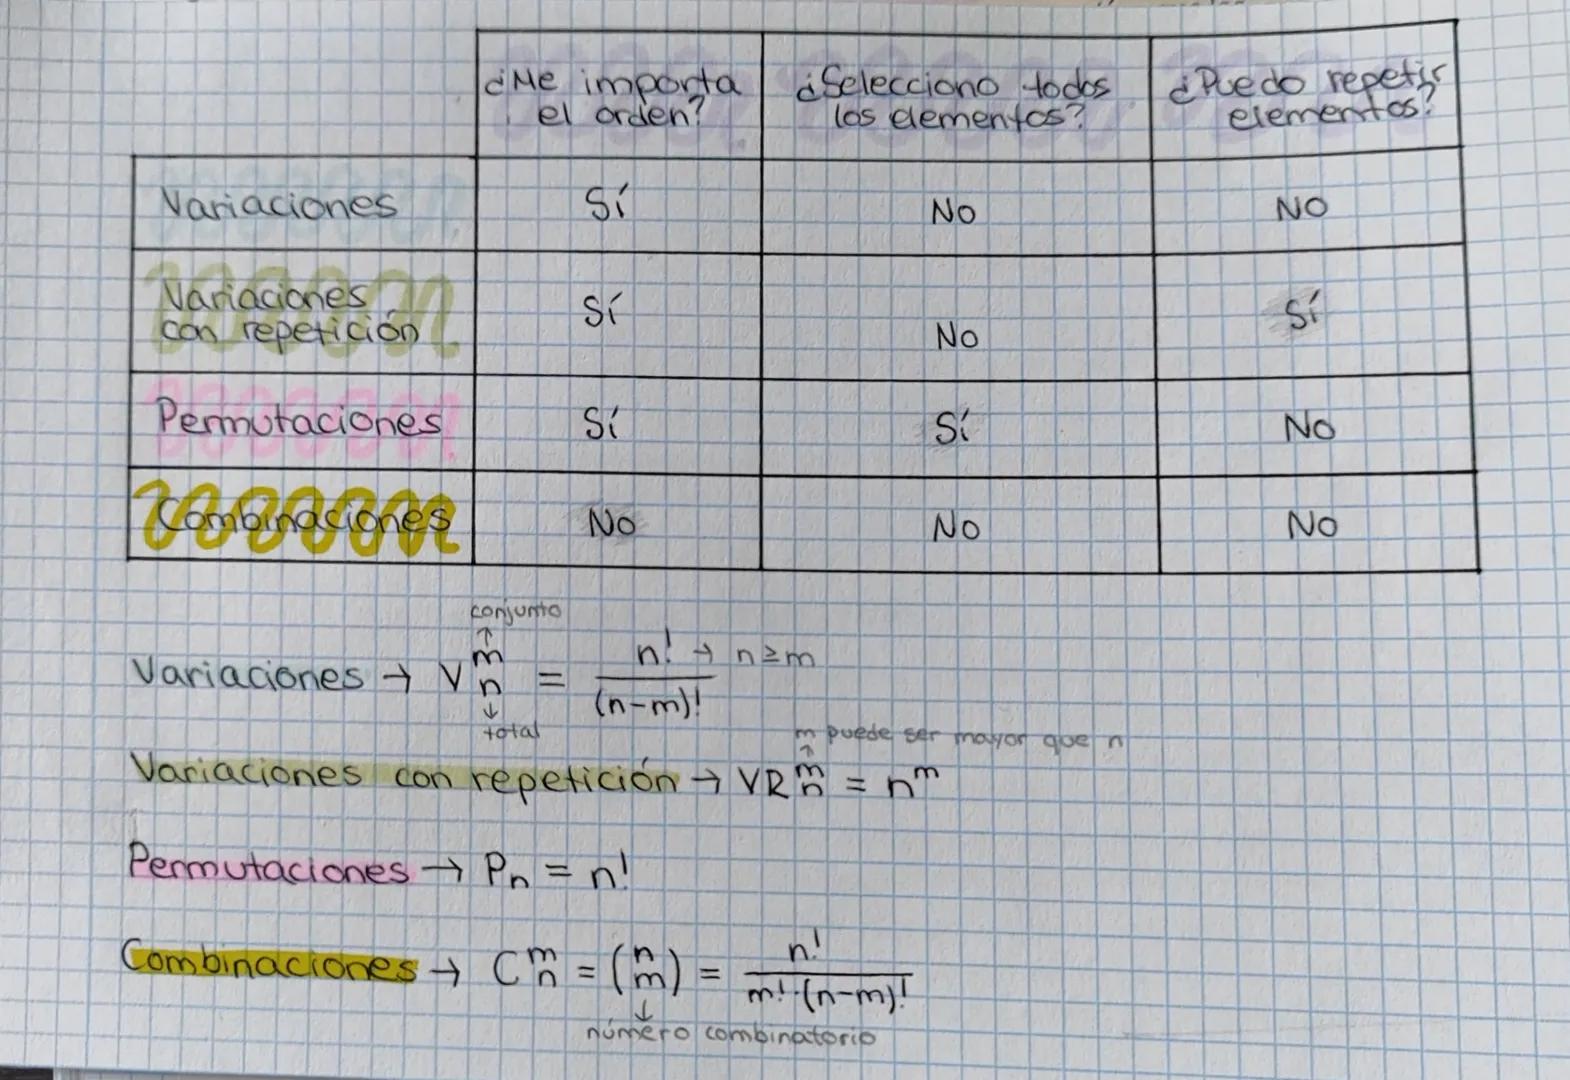 ¿Me importa el orden? ¿Selecciono todos los elementos? ¿Puedo repetir elementos?
Variaciones Sí No No
Variaciones con repetición Sí No Sí
Permutaciones Sí Sí No
Combinaciones No No No
conjunto
↑
Variaciones → V^m_n = n!/(n-m)! → n≥m
↓
total
m puede ser mayor que n
↑
Variaciones con repetición → VR^m_n = n^m
Permutaciones → P_n = n!
Combinaciones → C^m_n = (n m) = n!/m!·(n-m)!
↓
número combinatorio